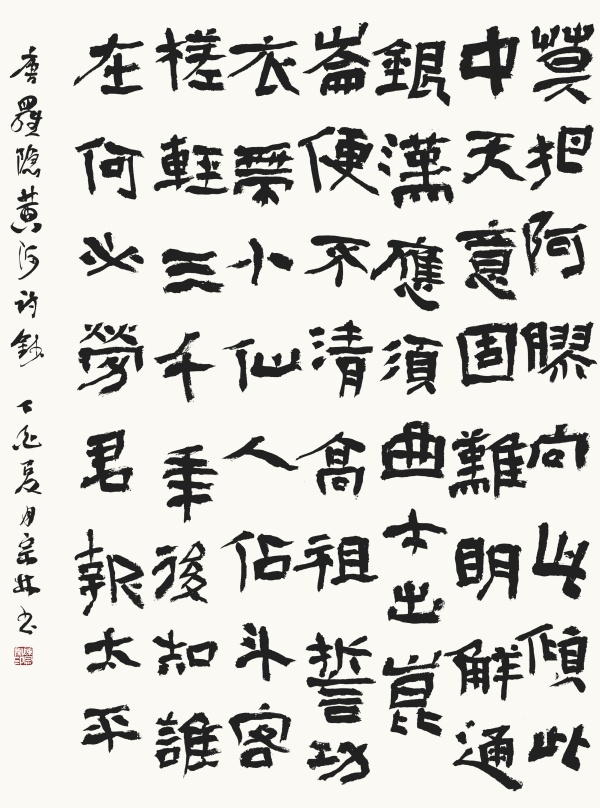 莫把阿膠向此傾此
中天意固難明解通
銀漢應須曲才出崑
崙便不清高祖誓功
衣帶小仙人佔斗客
槎輕三千年後知誰
在何必勞君報太平
唐羅隱黄河詩鈔 丁亥夏月宗林书